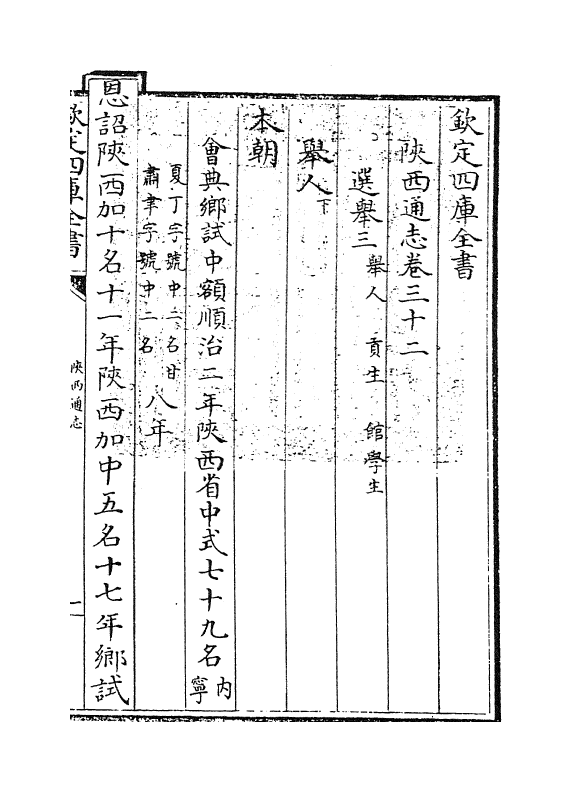 欽定四庫全書
陜西通志卷三十二
選舉三 舉人 貢生 館學生
舉人下
本朝
會典鄉試中額順治二年陜西省中式七十九名內寧
夏丁字號中二名甘肅聿字號中二名 八年
恩詔陜西加十名十一年陜西加中五名十七年鄉試
欽定四庫全書
陜西通志
一